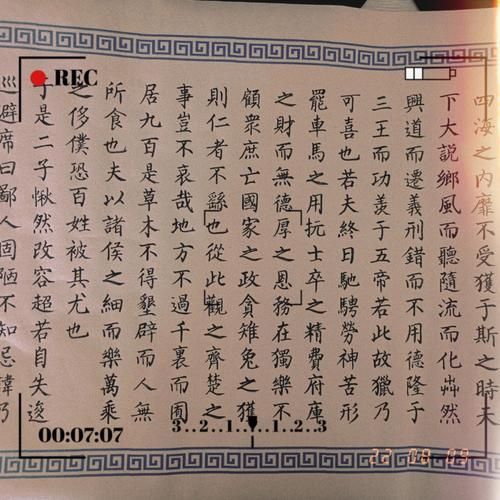 四海之內靡不受獲于斯之時天
下大説鄉風而聽隨流而化芔然
興道而遷義刑錯而不用德隆于
三王而功羨于五帝若此故獵乃
可喜也若夫終日馳騁勞神苦形
罷車馬之用抏士卒之精費府庫
之財而無德厚之恩務在獨樂不
顧眾庶亡國家之政貪雉兔之獲
則仁者不繇也從此觀之齊楚之
事豈不哀哉地方不過千裏而囿
居九百是草木不得墾辟而人無
所食也夫以諸侯之細而樂萬乘
之侈僕恐百姓被其尤也
于是二子愀然改容超若自失逡
巡避席曰鄙人固陋不知忌諱乃
REC
00:07:07
3..2..1..▼..1..2..3
22 08 09